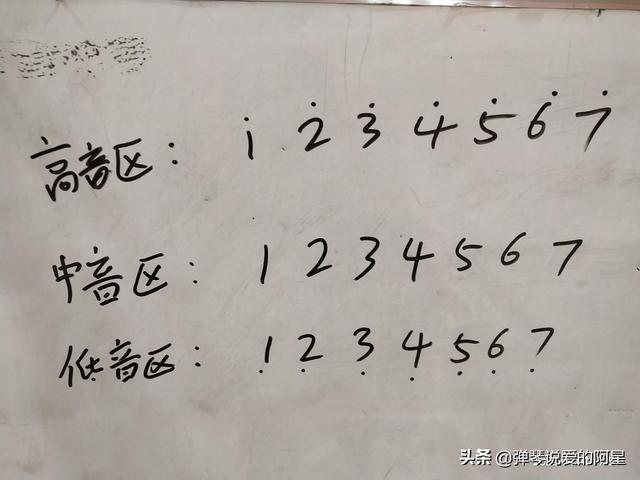 高音区： 1̇ 2̇ 3̇ 4̇ 5̇ 6̇ 7̇
中音区： 1 2 3 4 5 6 7
低音区： 1̣ 2̣ 3̣ 4̣ 5̣ 6̣ 7̣
头条 @弹琴说爱的阿星